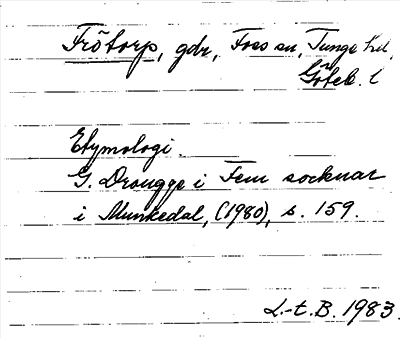 Frötorp, gdr, Foss sn, Tunge hd,
Göteb. l
Etymologi.
G. Drougge i Fem socknar
i Munkedal, (1980), s. 159.
L.-t. B. 1983.